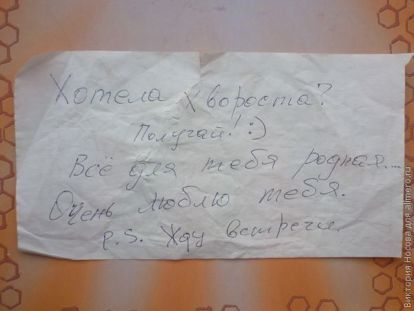 Хотела хвороста?
Получай! :)
Всё для тебя родная...
Очень люблю тебя.
p.s. Жду встречи.
Виктория Носова для almero.ru